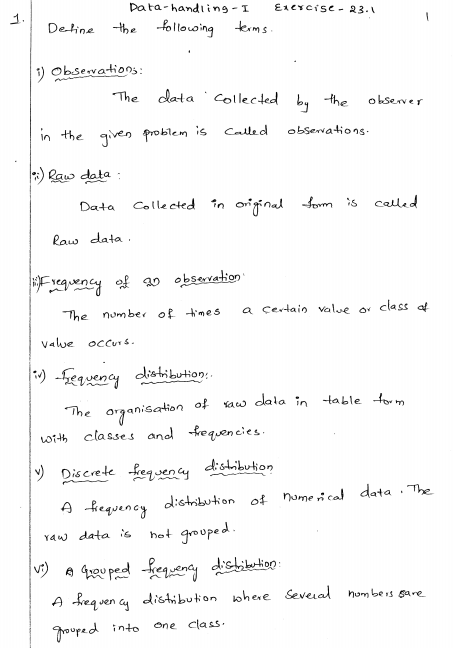 Data-handling-I Exercise-23.1
1
1. Define the following terms.
i) Observations:
The data collected by the observer
in the given problem is called observations.
ii) Raw data :
Data collected in original form is called
Raw data.
iii) Frequency of an observation:
The number of times a certain value or class of
value occurs.
iv) frequency distribution:.
The organisation of raw data in table form
with classes and frequencies.
v) Discrete frequency distribution
A frequency distribution of numerical data. The
raw data is not grouped.
vi) A Grouped frequency distribution:
A frequency distribution where several numbers are
grouped into one class.